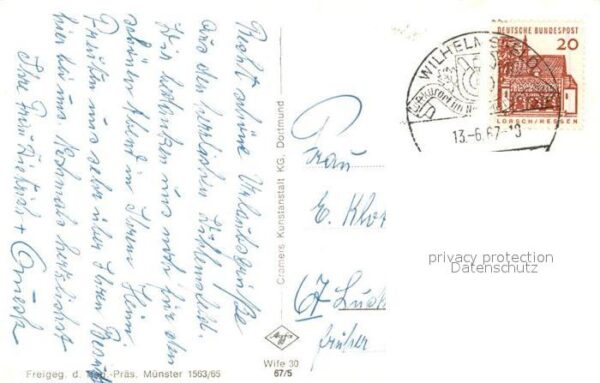 Recht schöne Urlaubsgrüße
aus dem herrlichen Wilhelmsbad.
Wir bedanken uns noch für den
schönen Abend in Ihrem Heim
Freuten uns sehr über Ihren Besuch
hier bei uns Nochmals herzlichst
Ihre Frau Dietrich +
Freigeg. d. Reg.-Präs. Münster 1563/65
Cramers Kunstanstalt KG. Dortmund
Wife 30
67/5
WILHELM
13.-6.67-10
DEUTSCHE BUNDESPOST
20
LORSCH/HESSEN
Frau
E.
67
früher
privacy protection
Datenschutz